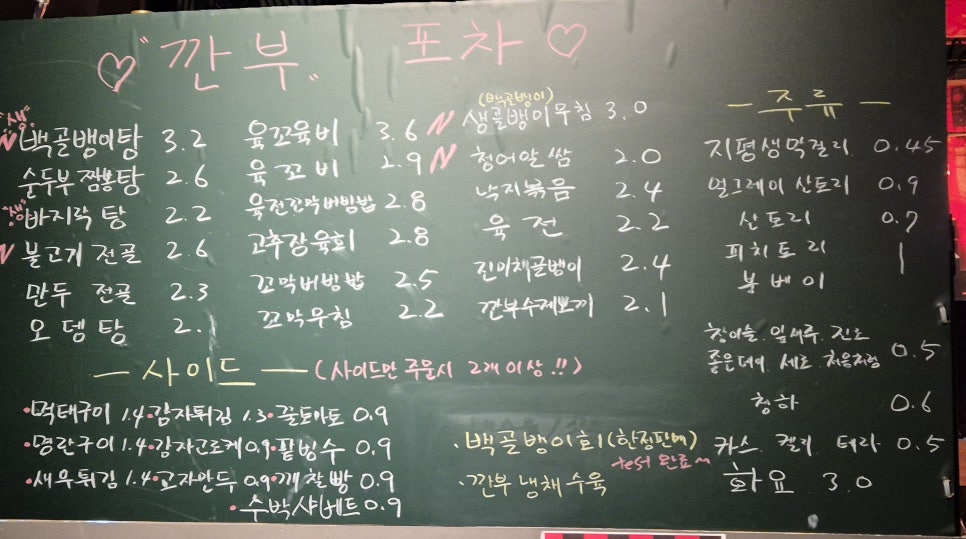 ♡ "깐부" 포차 ♡
"생"
N 백골뱅이탕 3.2
순두부짬뽕탕 2.6
"생" 바지락탕 2.2
N 불고기전골 2.6
만두 전골 2.3
오뎅탕 2.1
육꼬육비 3.6
육꼬비 2.9
육전꼬막비빔밥 2.8
고추장육회 2.8
꼬막비빔밥 2.5
꼬막무침 2.2
(백골뱅이)
N 생골뱅이무침 3.0
N 청어알쌈 2.0
낙지볶음 2.4
육전 2.2
진미채골뱅이 2.4
깐부수제뽀끼 2.1
- 주류 -
지평생막걸리 0.45
얼그레이 산토리 0.9
산토리 0.7
피치토리 1
봄베이
참이슬. 잎새주. 진로
좋은데이. 세로. 처음처럼 0.5
청하 0.6
카스 켈리 테라 0.5
화요 3.0
- 사이드 - (사이드만 주문시 2개 이상!!)
·먹태구이 1.4 ·감자튀김 1.3 ·꿀토마토 0.9
·명란구이 1.4 ·감자고로케 0.9 ·팥빙수 0.9
·새우튀김 1.4 ·교자만두 0.9 ·깨찰빵 0.9
·수박샤베트 0.9
·백골뱅이회(한정판매)
test 완료~
·깐부냉채수육